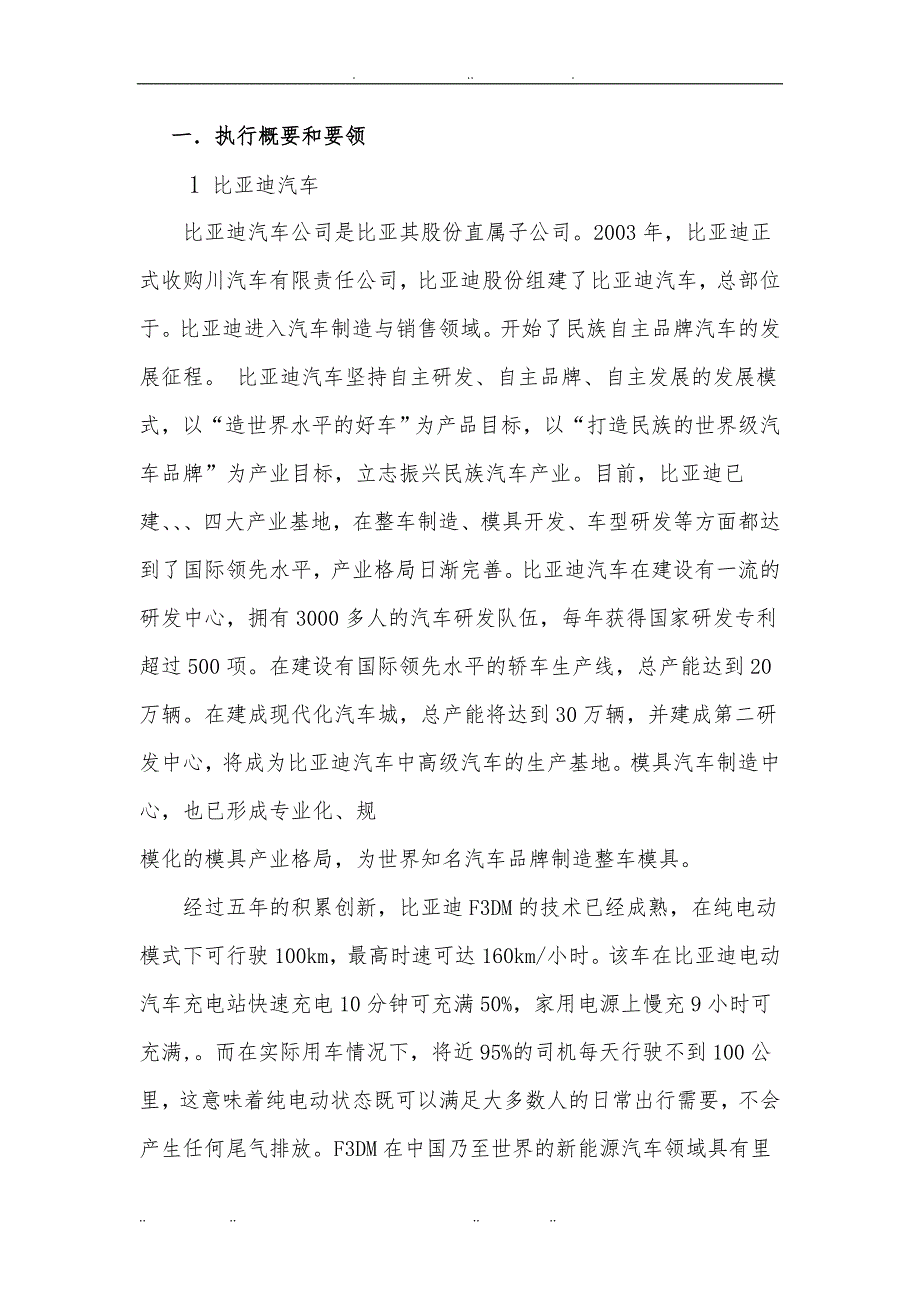 一．执行概要和要领
1 比亚迪汽车
比亚迪汽车公司是比亚其股份直属子公司。2003 年，比亚迪正
式收购川汽车有限责任公司，比亚迪股份组建了比亚迪汽车，总部位
于。比亚迪进入汽车制造与销售领域。开始了民族自主品牌汽车的发
展征程。 比亚迪汽车坚持自主研发、自主品牌、自主发展的发展模
式，以“造世界水平的好车”为产品目标，以“打造民族的世界级汽
车品牌”为产业目标，立志振兴民族汽车产业。目前，比亚迪已
建、、、四大产业基地，在整车制造、模具开发、车型研发等方面都达
到了国际领先水平，产业格局日渐完善。比亚迪汽车在建设有一流的
研发中心，拥有 3000 多人的汽车研发队伍，每年获得国家研发专利
超过 500 项。在建设有国际领先水平的轿车生产线，总产能达到 20
万辆。在建成现代化汽车城，总产能将达到 30 万辆，并建成第二研
发中心，将成为比亚迪汽车中高级汽车的生产基地。模具汽车制造中
心，也已形成专业化、规
模化的模具产业格局，为世界知名汽车品牌制造整车模具。
经过五年的积累创新，比亚迪 F3DM 的技术已经成熟，在纯电动
模式下可行驶 100km，最高时速可达 160km/小时。该车在比亚迪电动
汽车充电站快速充电 10 分钟可充满 50%，家用电源上慢充 9 小时可
充满,。而在实际用车情况下，将近 95%的司机每天行驶不到 100 公
里，这意味着纯电动状态既可以满足大多数人的日常出行需要，不会
产生任何尾气排放。F3DM 在中国乃至世界的新能源汽车领域具有里